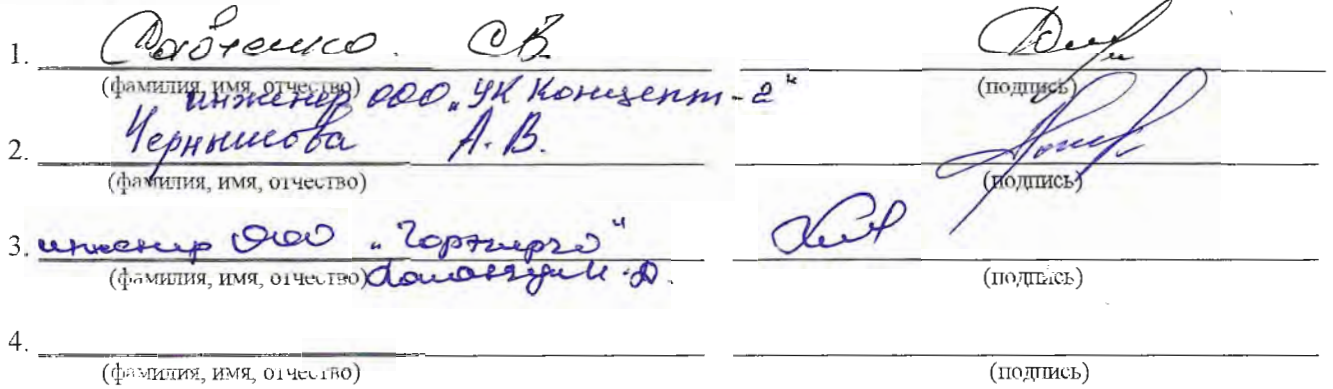 1. С.В.
(фамилия, имя, отчество) (подпись)
инженер ООО „УК Концепт-2"
2. Чернышова А.В. (подпись)
(фамилия, имя, отчество)
3. инженер ООО „Горэнерго"
(фамилия, имя, отчество) (подпись)
4.
(фамилия, имя, отчество) (подпись)